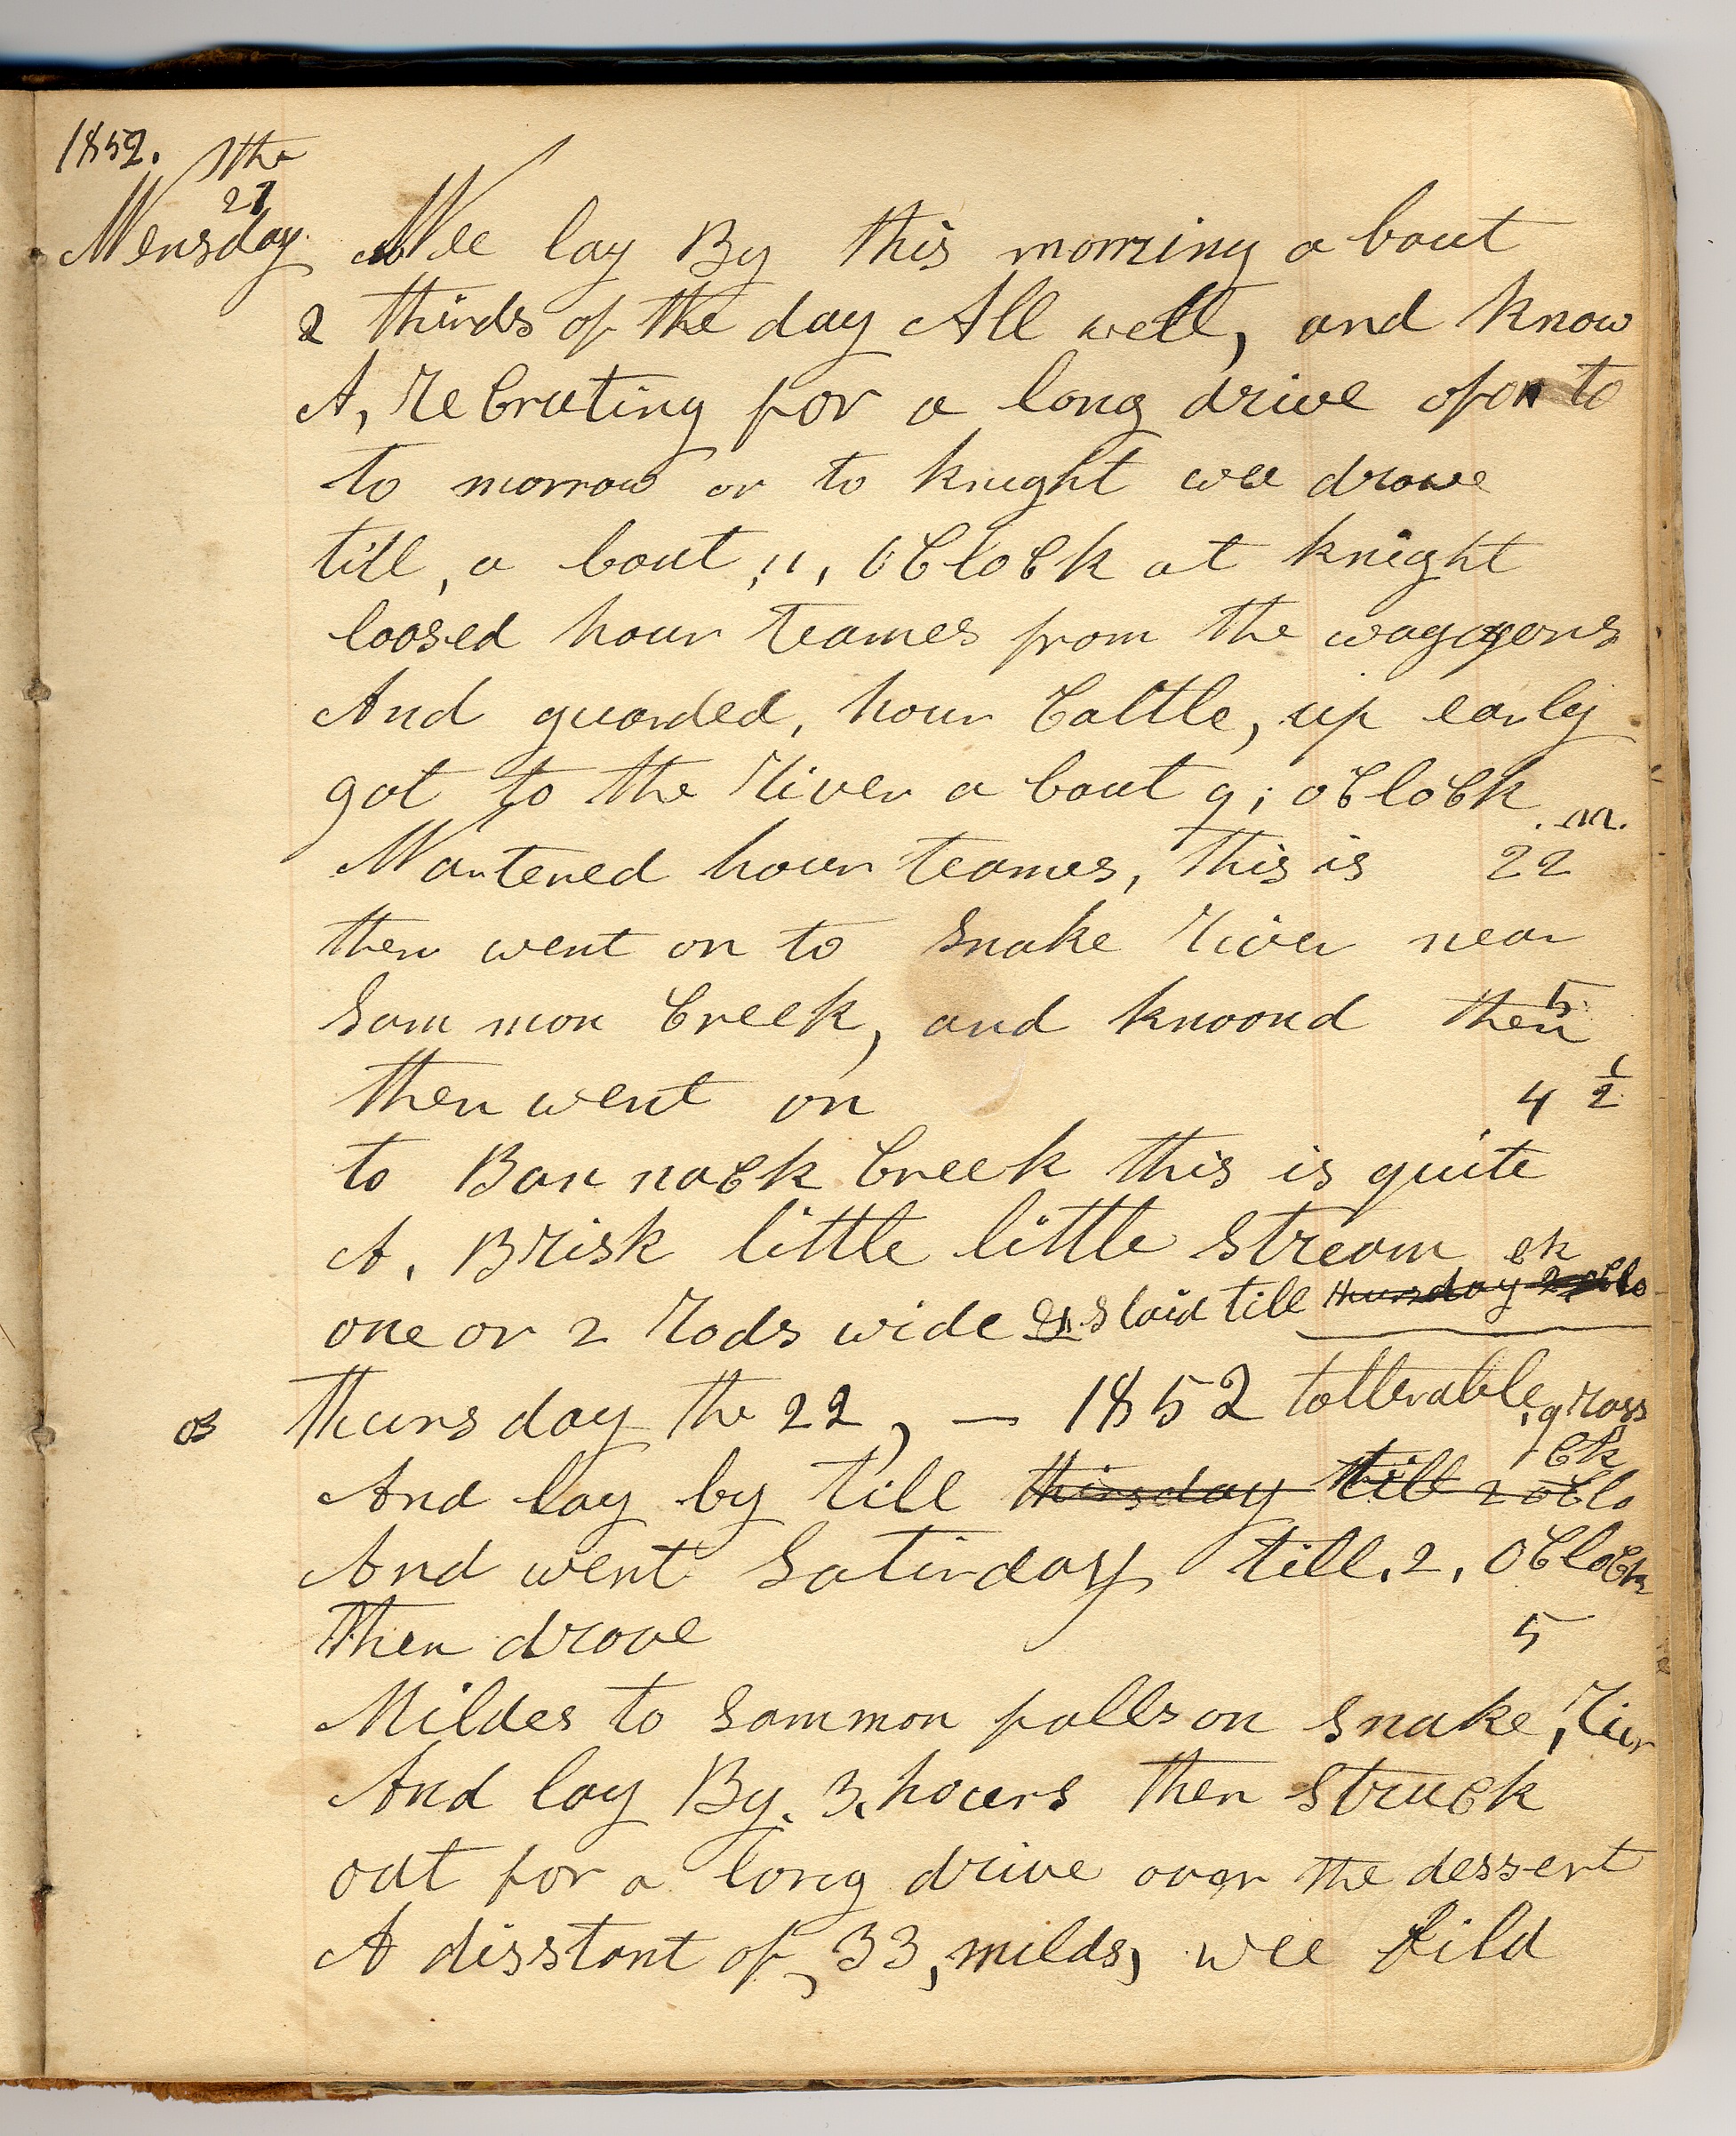 1852. the
21
Wensday Wee lay By this morning a bout
2 thirds of the day All well, and know
A, ReCruting for a long drive of on to
to morrow or to knight wee drove
till, a bout ,11, OCloCk at knight
loosed hour teames from the waggons
And guarded, hour Cattle, up early
got to the River a bout 9; oCloCk
Wartered hour teames, this is 22 .m.
then went on to Snake River near
Sam mon Creek, and knoond then 5
then went on 4 1/2
to Ban naCk Creek this is quite
A. BRisk little little Stream
one or 2 Rods wide & laid till thursday 2 oClo ck
Thursday the 22, — 1852 tollerable, grass
And lay by till thirsday till 2 oClo Ck
And went Saturday till. 2, OCloCk
then drove 5
Mildes to Sammon falls on Snake, River
And lay By. 3. hours then StruCk
out for a long drive over the dessert
A disstant of, 33, milds, wee fild